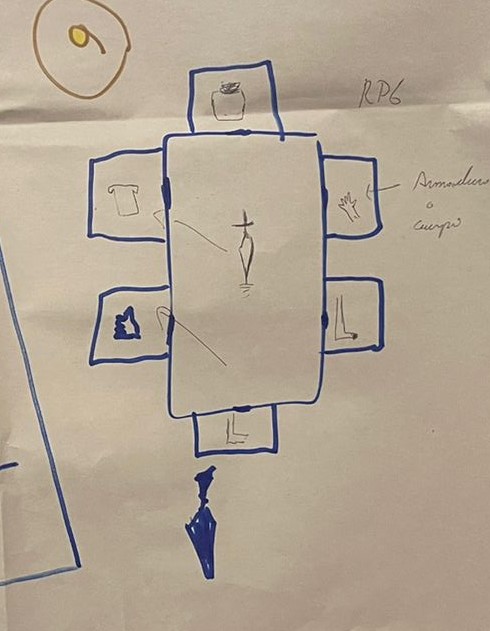 RPG
Armadura
o
cuerpo